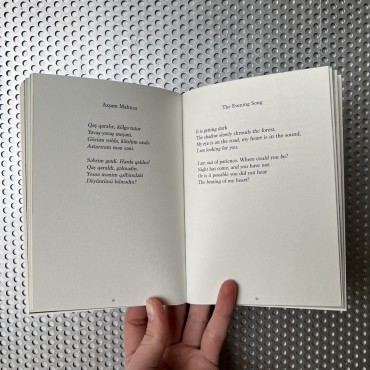 Axşam Mahnısı
Qaş qaralır, kölgə tutur
Yavaş yavaş meşəni.
Gözüm yolda, könlüm səsdə
Axtarıram mən səni.
Səbrim getdi. Harda qaldın?
Qaş qaraldı, gəlmədin.
Yoxsa mənim qəlbimdəki
Döyüntünü bilmədin?
The Evening Song
It is getting dark
The shadow slowly shrouds the forest.
My eye is on the road, my heart is in the sound,
I am looking for you.
I am out of patience. Where could you be?
Night has come, and you have not.
Or is it possible you did not hear
The beating of my heart?